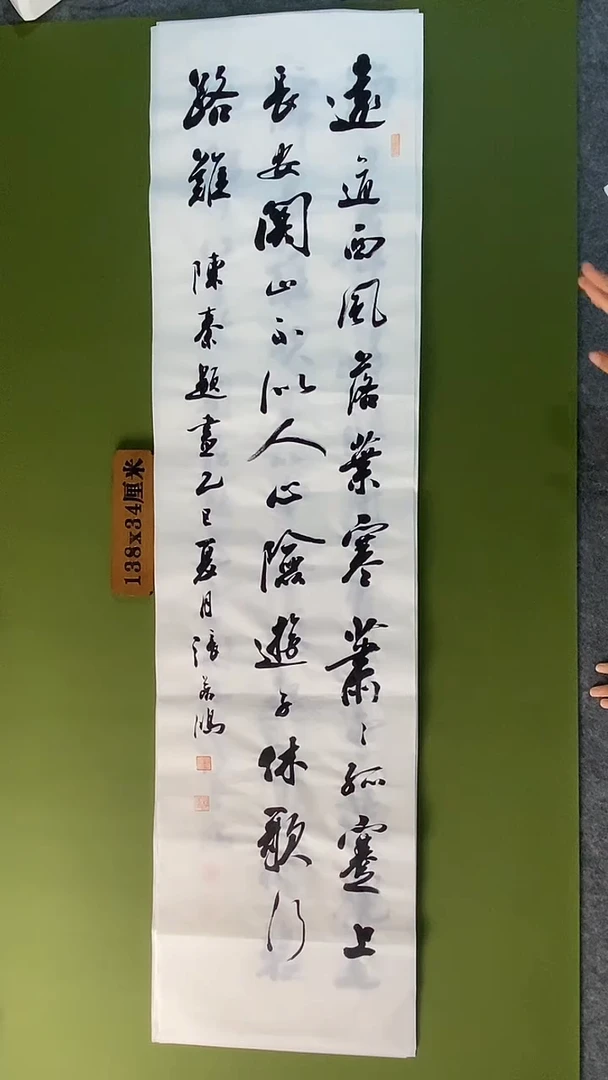 遠道西風落葉寒蕭々孤蹇上
長安關山不似人心險遊子休歌行
路難 陳秦題畫乙巳夏月張若鴻
138x34厘米